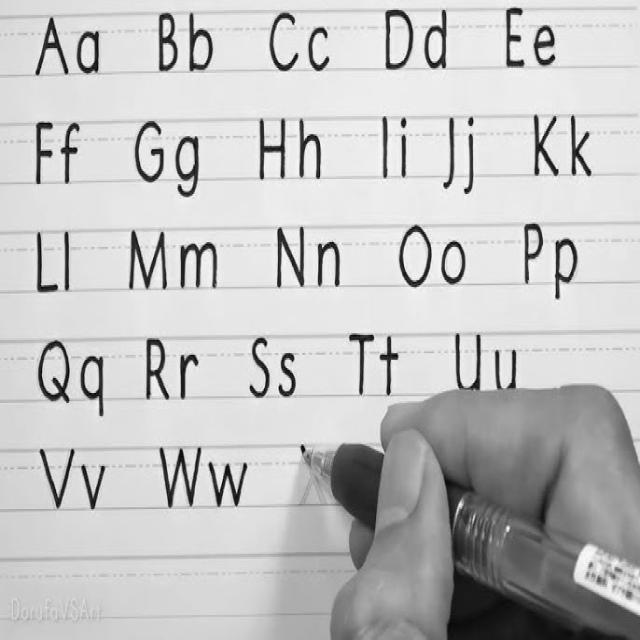 Aa Bb Cc Dd Ee
Ff Gg Hh Ii Jj Kk
Ll Mm Nn Oo Pp
Qq Rr Ss Tt Uu
Vv Ww